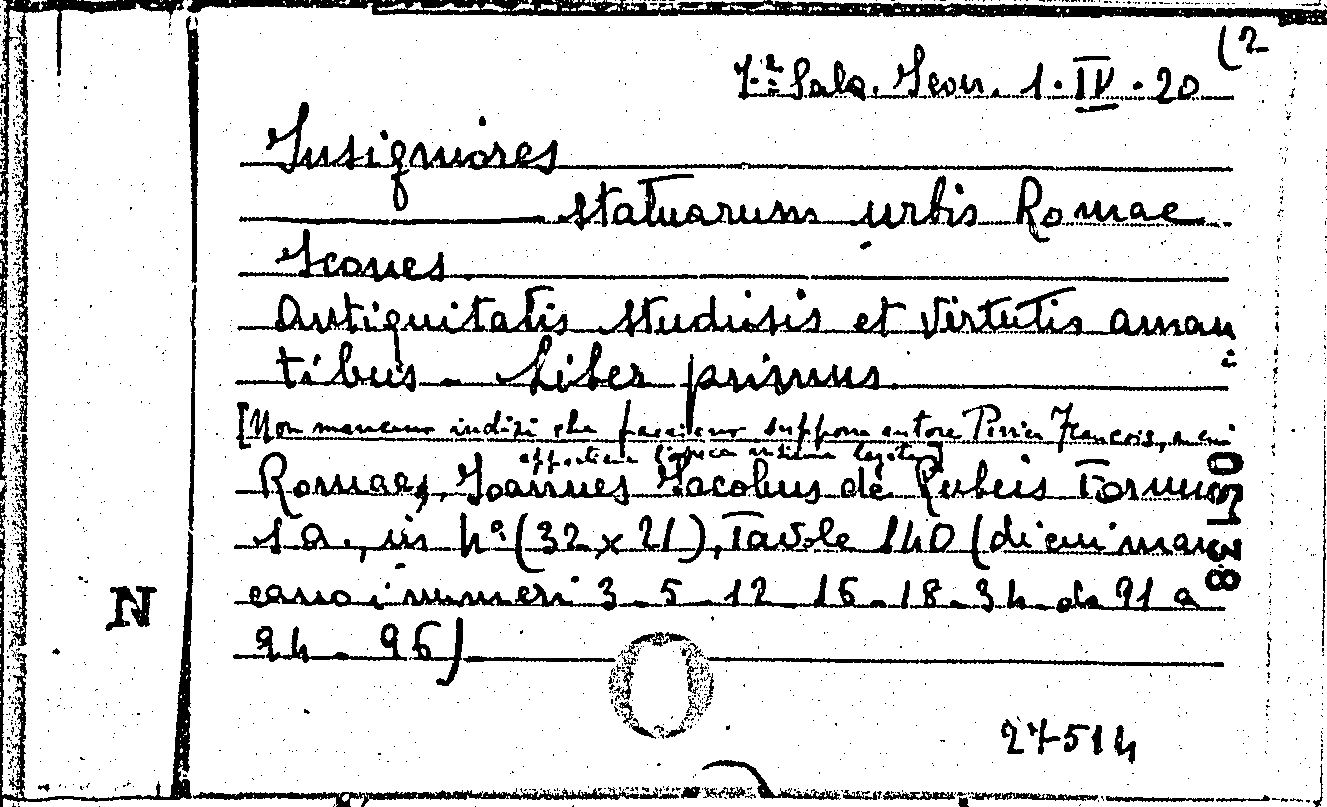 (2
7.ª Sala. Scon. 1. IV. 20
Insigniores
statuarum urbis Romae
Icones
Antiquitatis studiosis et virtutis aman
tibus - Liber primus
[Non mancano indizi che facciano supporre autore Perrier François,
Romae, Joannes Jacobus de Rubeis Formis
s a., in 4º (32 x 21), Tavole 140 (di cui man
cano i numeri 3 - 5 - 12 - 16 - 18 - 34 - da 91 a
94 - 96)
N
27514